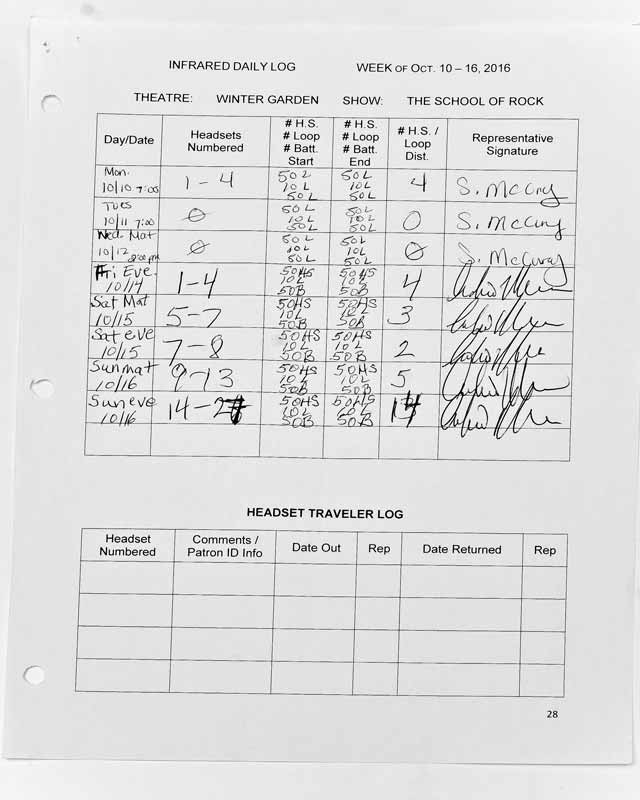 INFRARED DAILY LOG WEEK OF OCT. 10 – 16, 2016
THEATRE: WINTER GARDEN SHOW: THE SCHOOL OF ROCK
Day/Date Headsets Numbered # H.S. # Loop # Batt. Start # H.S. # Loop # Batt. End # H.S. / Loop Dist. Representative Signature
Mon. 10/10 7:00 1-4 50L 10L 50L 50L 10L 50L 4 S. McCury
Tues 10/11 7:00 0 50L 10L 50L 50L 10L 50L 0 S. McCury
Wed. Mat 10/12 2:00pm 0 50L 10L 50L 50L 10L 50L 0 S. McCuray
Fri Eve. 10/14 1-4 50HS 10L 50B 50HS 10L 50B 4
Sat Mat 10/15 5-7 50HS 10L 50B 50HS 10L 50B 3
Sat eve 10/15 7-8 50HS 10L 50B 50HS 10L 50B 2
Sun mat 10/16 9-13 50HS 10L 50B 50HS 10L 50B 5
Sun eve 10/16 14- 50HS 10L 50B 50HS 10L 50B
HEADSET TRAVELER LOG
Headset Numbered Comments / Patron ID Info Date Out Rep Date Returned Rep
28